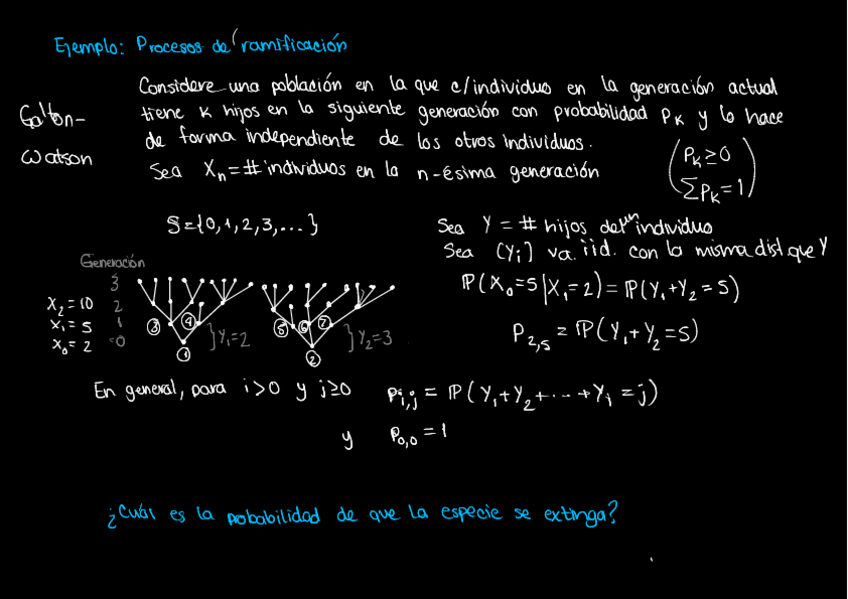 Ejemplo: Procesos de ramificación
Galton-
Watson
Considere una población en la que c/individuo en la generación actual
tiene k hijos en la siguiente generación con probabilidad Pk y lo hace
de forma independiente de los otros individuos.
Sea Xn = # individuos en la n-ésima generación
(Pk ≥ 0
ΣPk = 1)
S = {0, 1, 2, 3, ...}
Sea Y = # hijos de un individuo
Sea (Yi) va. iid. con la misma dist. que Y
Generación
3
X2 = 10 2
X1 = 5 1
X0 = 2 =0
③ ④ ⑤ ⑥ ⑦
① }Y1=2 ② }Y2=3
P(X0=5|X1=2) = P(Y1+Y2=5)
P2,5 = P(Y1+Y2=5)
En general, para i>0 y j≥0 Pi,j = P(Y1+Y2+...+Yi=j)
y P0,0 = 1
¿Cuál es la probabilidad de que la especie se extinga?